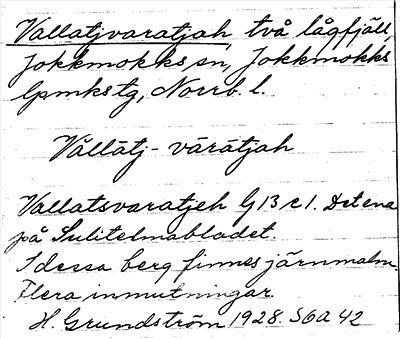 Vallatjvaratjah, två lågfjäll,
Jokkmokks sn, Jokkmokks
lpmkstg, Norrb. l.
Vállātj- vārātjah
Vallatsvaratjeh G13 c1. Det ena
på Sulitelmabladet.
I dessa berg finnes järnmalm.
Flera inmutningar.
H. Grundström 1928. S6a 42